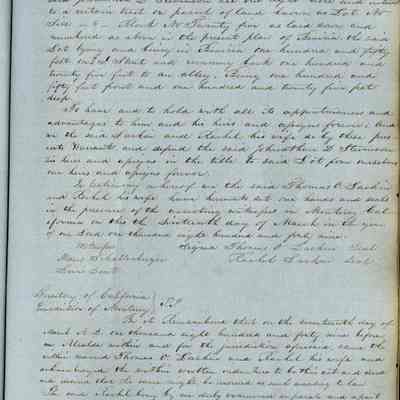 to a certain lot or parcel of land known as Lot No
in Block No Twenty five as laid down and
numbered as above in the present plan of Benicia the said
Lot lying and being in Benicia one hundred and fifty
feet on Street and running back one hundred and
twenty five feet to an alley. Being one hundred and
fifty feet front and one hundred and twenty five feet
deep.
To have and to hold with all its appurtenances and
advantages to him and his heirs and assigns forever. And
we the said Larkin and Rachel his wife do by these pres
ents Warrant and defend the said Johnathan D Stevenson
his heirs and assigns in the title to said Lot from ourselves
our heirs and assigns forever.
In testimony whereof we the said Thomas O. Larkin
and Rachel his wife have hereunto set our hands and seals
in the presence of the subscribing witnesses in Monterey Cal
ifornia on this the Sixteenth day of March in the year
of our Lord one thousand eight hundred and forty nine.
Witness Signed Thomas O Larkin Seal
Schallenberger Rachel Larkin Seal
Territory of California
Jurisdiction of Monterey SS
Be it Remembered that on the seventeenth day of
March A.D. one thousand eight hundred and forty nine before
an Alcalde within and for the jurisdiction aforesaid came the
within named Thomas O. Larkin and Rachel his wife and
acknowledged the within written indenture to be their act and deed
and desired that the same might be recorded as such according to law.
The said Rachel being by me duly examined separate and apart